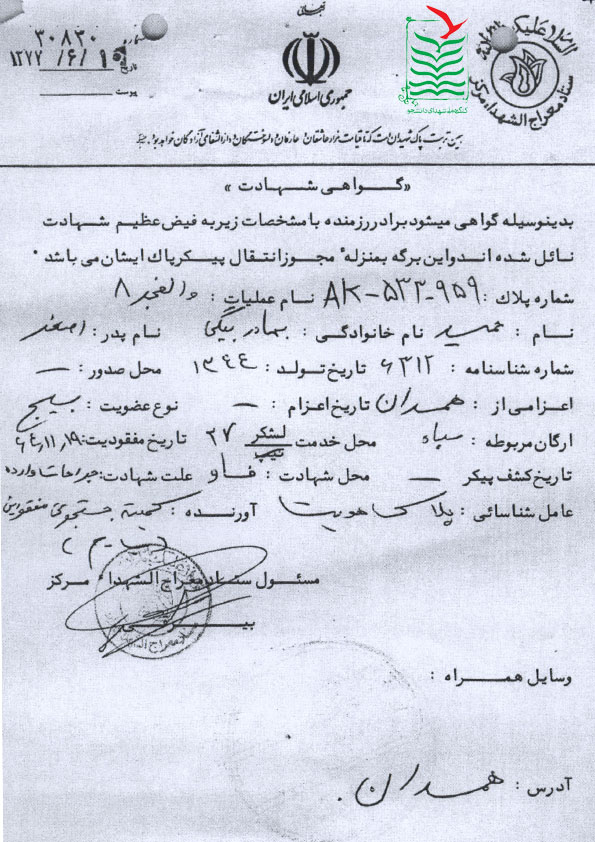 بسمه تعالی
شماره ۳۰۸۳۰
تاریخ ۱۳۷۷/۶/۱۰
پیوست
جمهوری اسلامی ایران
کنگره ملی شهدای دانشجو
ستاد معراج الشهداء مرکز
همین تربت پاک شهیدان است که تا قیامت مزار عاشقان و عارفان و دلسوختگان و دارالشفای آزادگان خواهد بود.
«گـواهـی شـهـادت»
بدینوسیله گواهی میشود برادر رزمنده با مشخصات زیر به فیض عظیم شهادت
نائل شده اند و این برگه بمنزلهٔ مجوز انتقال پیکر پاک ایشان می باشد.
شماره پلاک : AK-۵۳۳-۹۵۹ نام عملیات : والفجر ۸
نـام : حمید نام خانوادگی : بهادربیگی نام پدر : اصغر
شماره شناسنامه : ۶۳۱۲ تاریخ تـولـد : ۱۳۴۴ محل صدور : —
اعزامی از : همدان تاریخ اعزام : — نوع عضویت : بسیج
ارگان مربوطه : سپاه محل خدمت لشکر تیپ ۳۷ تاریخ مفقودیت: ۶۴,۱۱,۱۹
تاریخ کشف پیکر — محل شهادت : فاو علت شهادت: جراحات وارده
عامل شناسائی : پلاک هویت آورنده : کمیته جستجوی مفقودین
مسئـول ستـاد معراج الشهداء مرکز
وسایل همـراه :
آدرس : همدان.